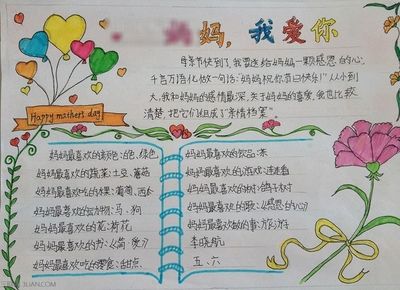 妈妈,我爱你
母亲节快到了,我要送给妈妈一颗感恩的心,
千言万语化做一句话:“妈妈祝你节日快乐!”从小到
大,我和妈妈的感情最深,关于妈妈的喜爱,我也比较
清楚,把它们组成了“亲情档案”
Happy mathers day
妈妈最喜欢的颜色:白色、绿色
妈妈最喜欢的蔬菜:土豆、蘑菇
妈妈最喜欢吃的水果:葡萄、西
妈妈最喜欢的动物:马、狗
妈妈最喜欢的花:菊花
妈妈最喜欢的书:《简·爱》
妈妈最喜欢吃的零食:甜点
妈妈最喜欢的饮品:茶
妈妈最喜欢的游戏:连连看
妈妈最喜欢的树:鸽子树
妈妈最喜欢的歌:《感恩的心》
妈妈最喜欢做的事:旅游
李晓航
五、六